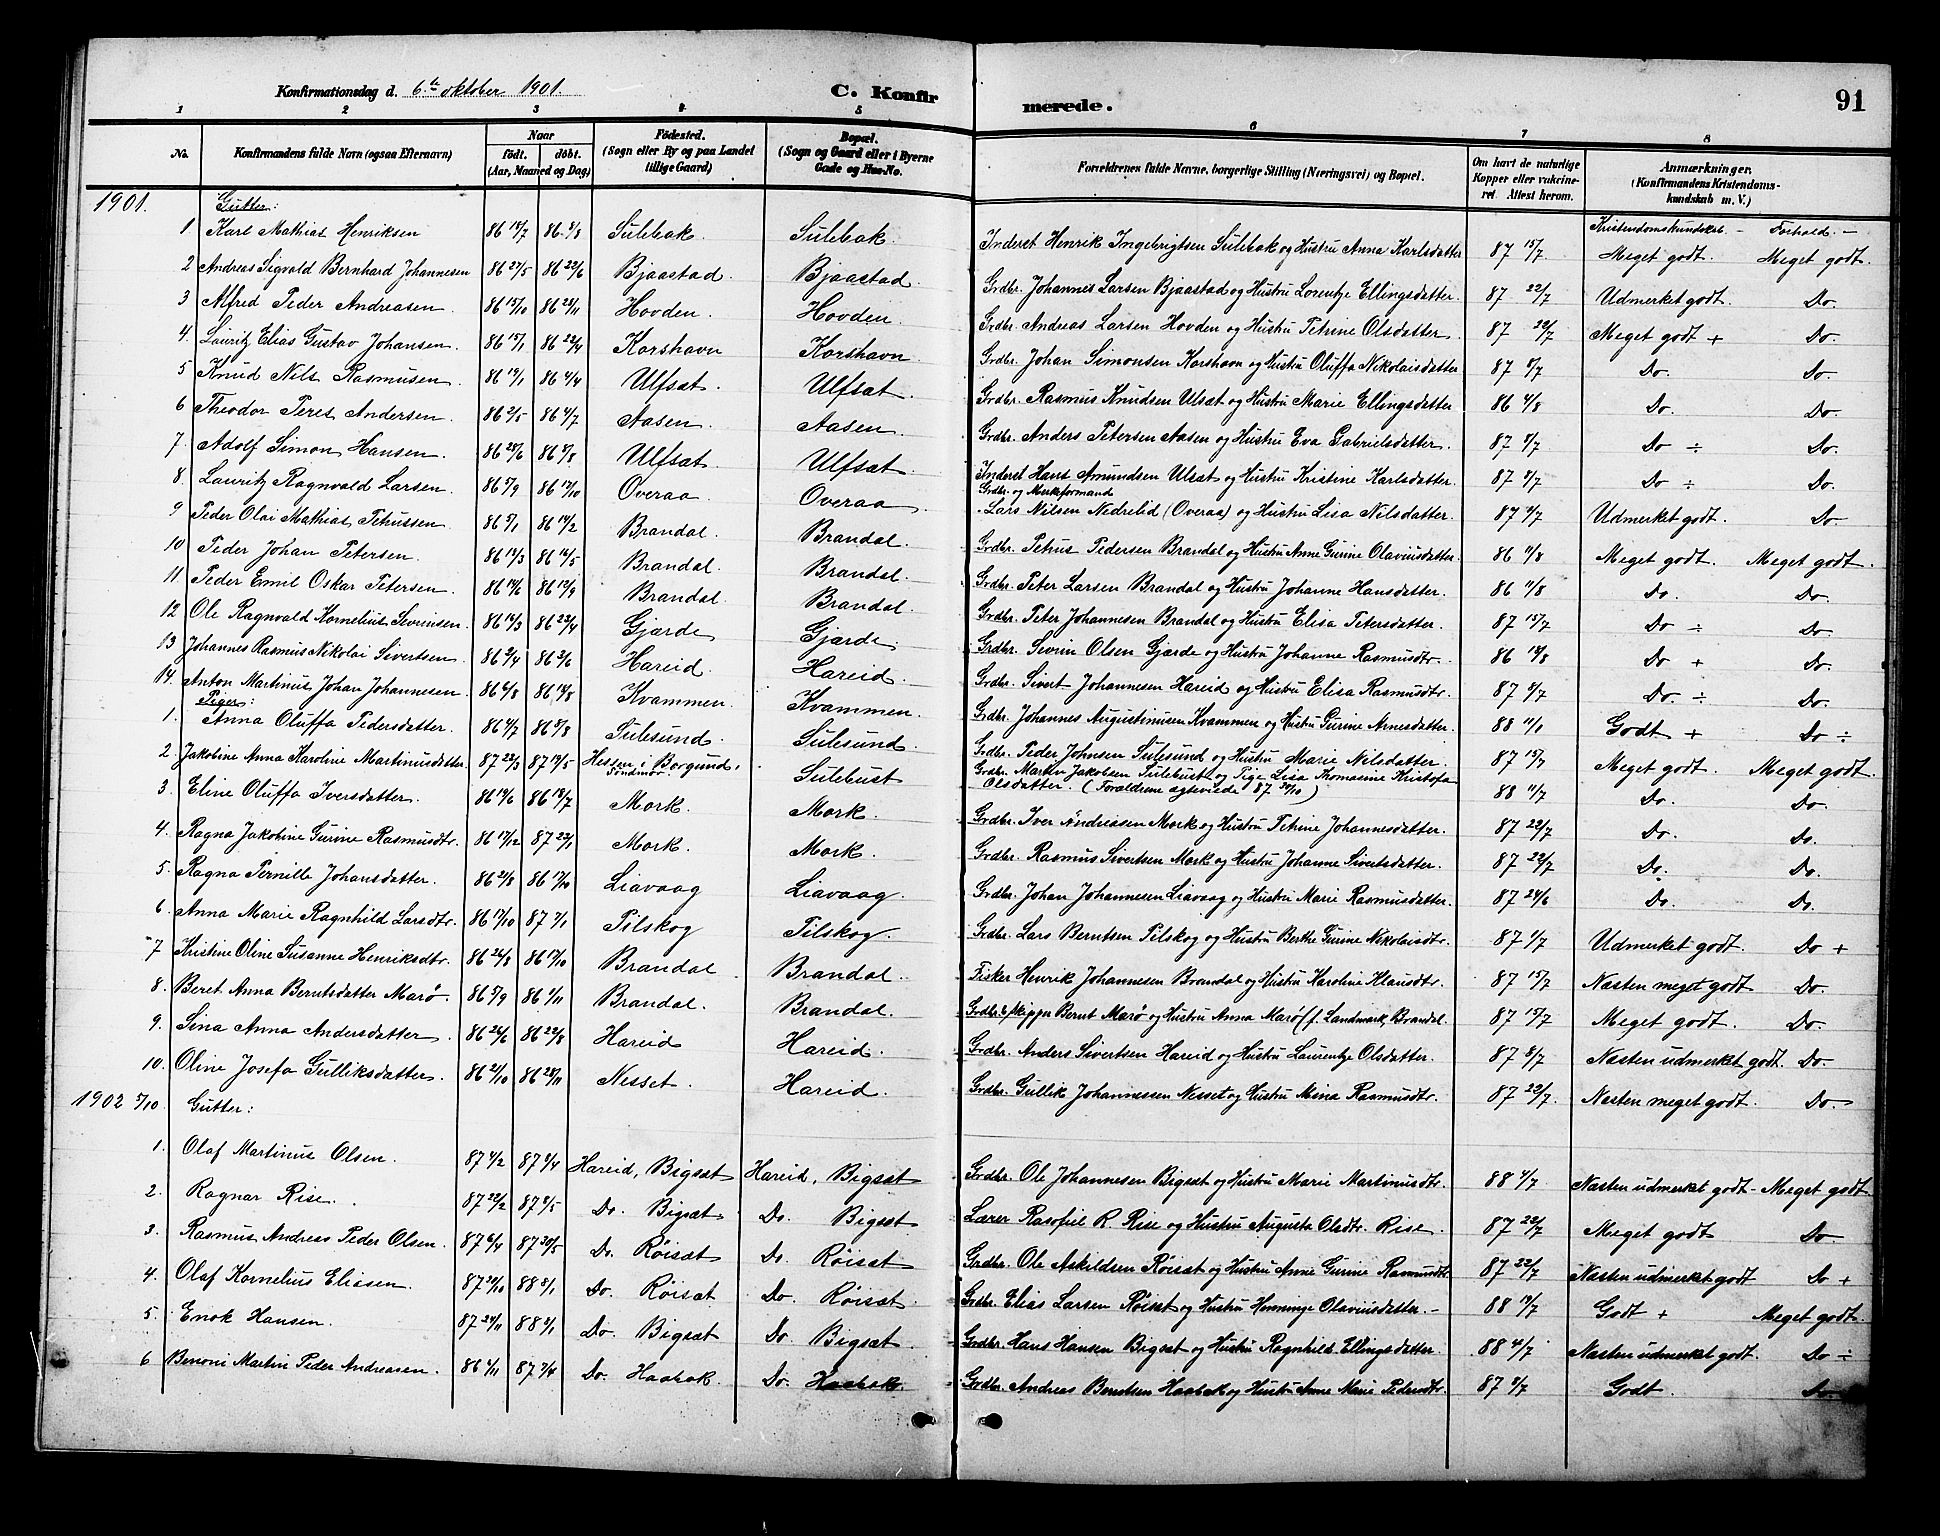 Konfirmationsdag d. 6te oktober 1901.
C. Konfirmerede.
91
1 2 3 4 5 6 7 8
No. Konfirmandens fulde Navn (ogsaa Efternavn) Naar født. døbt. (Aar, Maaned og Dag) Fødested. (Sogn eller By og paa Landet tillige Gaard) Bopæl. (Sogn og Gaard eller i Byerne Gade og Hus-No. Forældrenes fulde Navne, borgerlige Stilling (Næringsvei) og Bopæl. Om havt de naturlige Kopper eller vakcineret Attest herom. Anmærkninger. (Konfirmandens Kristendomskundskab m. V.)
1901. Gutter: Kristendomskundskab - Forhold -
1 Karl Mathias Henriksen Sulebak. Sulebak. Inderst Henrik Ingebrigtsen Sulebak og Hustru Anna Karlsdatter 87 15/7 Meget godt. Meget godt.
2 Andreas Sigvald Bernhard Johannesen 86 27/5 86 22/6 Bjaastad. Bjaastad. Grdbr. Johannes Larsen Bjaastad og Hustru Lorentze Ellingsdatter. 87 22/7 Udmerket godt. Do.
3 Alfred Peder Andreasen. 86 15/10 Hovden. Hovden. Grdbr. Andreas Larsen Hovden og Hustru Petrine Olsdatter. 87 22/7 Meget godt + Do.
4. Lauritz Elias Gustav Johansen. 86 15/1 86 22/4 Korshavn Korshavn Grdbr. Johan Simonsen Korshavn og Hustru Oluffa Nikolaisdatter Do. Do.
5 Knud Nils Rasmusen. 86 4/4 Ulfsæt. Ulfsæt. Grdbr. Rasmus Knudsen Ulsæt og Hustru Marie Ellingsdatter 86 4/8 Do. Do.
6 Theodor Peres Andersen. 86 2/5 86 4/7 Aasen. Aasen. Grdbr. Anders Petersen Aasen og Hustru Eva Gabrielsdatter. Do ÷ Do.
7. Adolf Simon Hansen. Ulfsæt. Ulfsæt. Inderst Hans Amundsen Ulsæt og Hustru Kristine Karlsdatter. Do ÷ Do.
8. Lauritz Ragnvald Larsen. Overaa. Overaa. Grdbr. og Merkeformand
Lars Nilsen Nedrelid (Overaa) og Hustru Lisa Nilsdatter. Udmerket godt. Do
9 Peder Olai Mathias Petrussen Brandal. Brandal. Grdbr. Petrus Pedersen Brandal og Hustru Anne Gurine Olaviusdatter. Meget godt. Meget godt.
10 Peder Johan Petersen. 86 14/3 86 16/5 Brandal. Brandal. Grdbr. Peter Larsen Brandal og Hustru Johanne Hansdatter. Do. Do.
11. Peder Emil Oskar Petersen. Brandal. Brandal. Grdbr. Peter Johannesen Brandal og Hustru Elisa Petersdatter. 87 15/7 Do ÷ Do
12 Ole Ragnvald Kornelius Severinsen. Gjærde Gjærde. Grdbr. Sevrin Olsen Gjærde og Hustru Johanne Rasmusdtr. Do + Do.
13 Johannes Rasmus Nikolai Sivertsen. Hareid. Hareid. Grdbr. Sivert Johannesen Hareid og Hustru Elisa Rasmusdtr. Do. ÷ Do.
14. Anton Martinus Johan Johannesen. Kvammen. Kvammen. Grdbr. Johannes Augustinusen Kvammen og Hustru Gurine Arnesdatter. Godt + Do ÷
Piger:
1. Anna Oluffa Pedersdatter. Sulesund. Sulesund. Grdbr. Peder Johnsen Sulesund og Hustru Marie Nilsdatter. 87 15/7 Meget godt. Meget godt.
2. Jakobine Anna Karoline Martinusdatter. 87 22/3 87 19/5 Hessen i Borgund, Søndmør. Sulebust Grdbr. Martin Jakobsen Sulebust og Pige Lisa Thomasine Kristofa
Olsdatter. (Forældrene ægteviede 87 30/10) 88 11/7 Do. Do.
3. Eline Oluffa Iversdatter. Mork. Mork. Grdbr. Iver Andreasen Mork og Hustru Petrine Johannesdatter. 87 22/7 Do. Do.
4. Ragna Jakobine Gurine Rasmusdtr. 86 17/12 87 23/1 Mork. Mork. Grdbr. Rasmus Sivertsen Mork og Hustru Johanne Sivertsdatter. 87 22/7 Do. Do.
5. Ragna Pernille Johansdatter. Liavaag Liavaag. Grdbr. Johan Johannesen Liavaag og Hustru Marie Rasmusdatter. 87 24/6 Do. Do.
6. Anna Marie Ragnhild Larsdtr. 86 17/10 87 7/1 Pilskog Pilskog. Grdbr. Lars Berntsen Pilskog og Hustru Berthe Gurine Nikolaisdtr. Udmerket godt. Do +
7 Kristine Oline Susanne Henriksdtr. 86 26/8 86 17/10 Brandal Brandal. Fisker Henrik Johannesen Brandal og Hustru Karoline Klausdtr. 87 15/7 Næsten meget godt Do.
8. Beret Anna Berntsdatter Marø. 86 5/9 86 1/11 Brandal. Brandal. Grdbr. & skipper Bernt Marø og Hustru Anna Marø f. Landmark, Brandal. 87 15/7 Meget godt. Do.
9. Sina Anna Andersdatter. 86 26/6 86 22/8 Hareid Hareid. Grdbr. Anders Sivertsen Hareid og Hustru Laurentze Olsdatter. 87 8/7 Næsten udmerket godt. Do.
10. Oline Josefa Gulliksdatter. 86 21/10 86 28/11 Nesset. Hareid. Grdbr. Gullik Johannessen Nesset og Hustru Mina Rasmusdtr. 87 22/7. Næsten meget godt. Do.
1902 5/10. Gutter:
1. Olaf Martinus Olsen. Hareid, Bigsæt Hareid, Bigsæt Grdbr. Ole Johannesen Bigsæt og Hustru Marie Martinusdtr. Næsten udmerket godt - Meget godt
2. Ragnar Rise. 87 22/2 87 8/5 Do. Bigsæt Do. Bigsæt Lærer Rasofiel R. Rise og Hustru Augusta Olsdtr. Rise. 87 22/7 Meget godt Do
3. Rasmus Andreas Peder Olsen. 87 6/4 87 30/5 Do. Røisæt Do. Røisæt Grdbr. Ole Askildsen Røisæt og Hustru Anne Gurine Rasmusdtr 87 22/7 Næsten udmerket godt Do +
4. Olaf Kornelius Eliasen. Do. Røisæt Do. Røisæt. Grdbr. Elias Larsen Røisæt og Hustru Henninge Olaviusdatter. - Godt + Meget godt.
5. Enok Hansen. Do. Bigsæt Do. Bigsæt. Grdbr. Hans Hansen Bigsæt og Hustru Ragnhild Ellingsdatter Næsten udmerket godt. Do ÷
6 Benoni Martin Peder Andreasen. 86 4/11 87 7/4 Do. Haabak. Do. Haabak. Grdbr. Andreas Berntsen Haabak og Hustru Anne Marie Pedersdtr. Godt. Do.